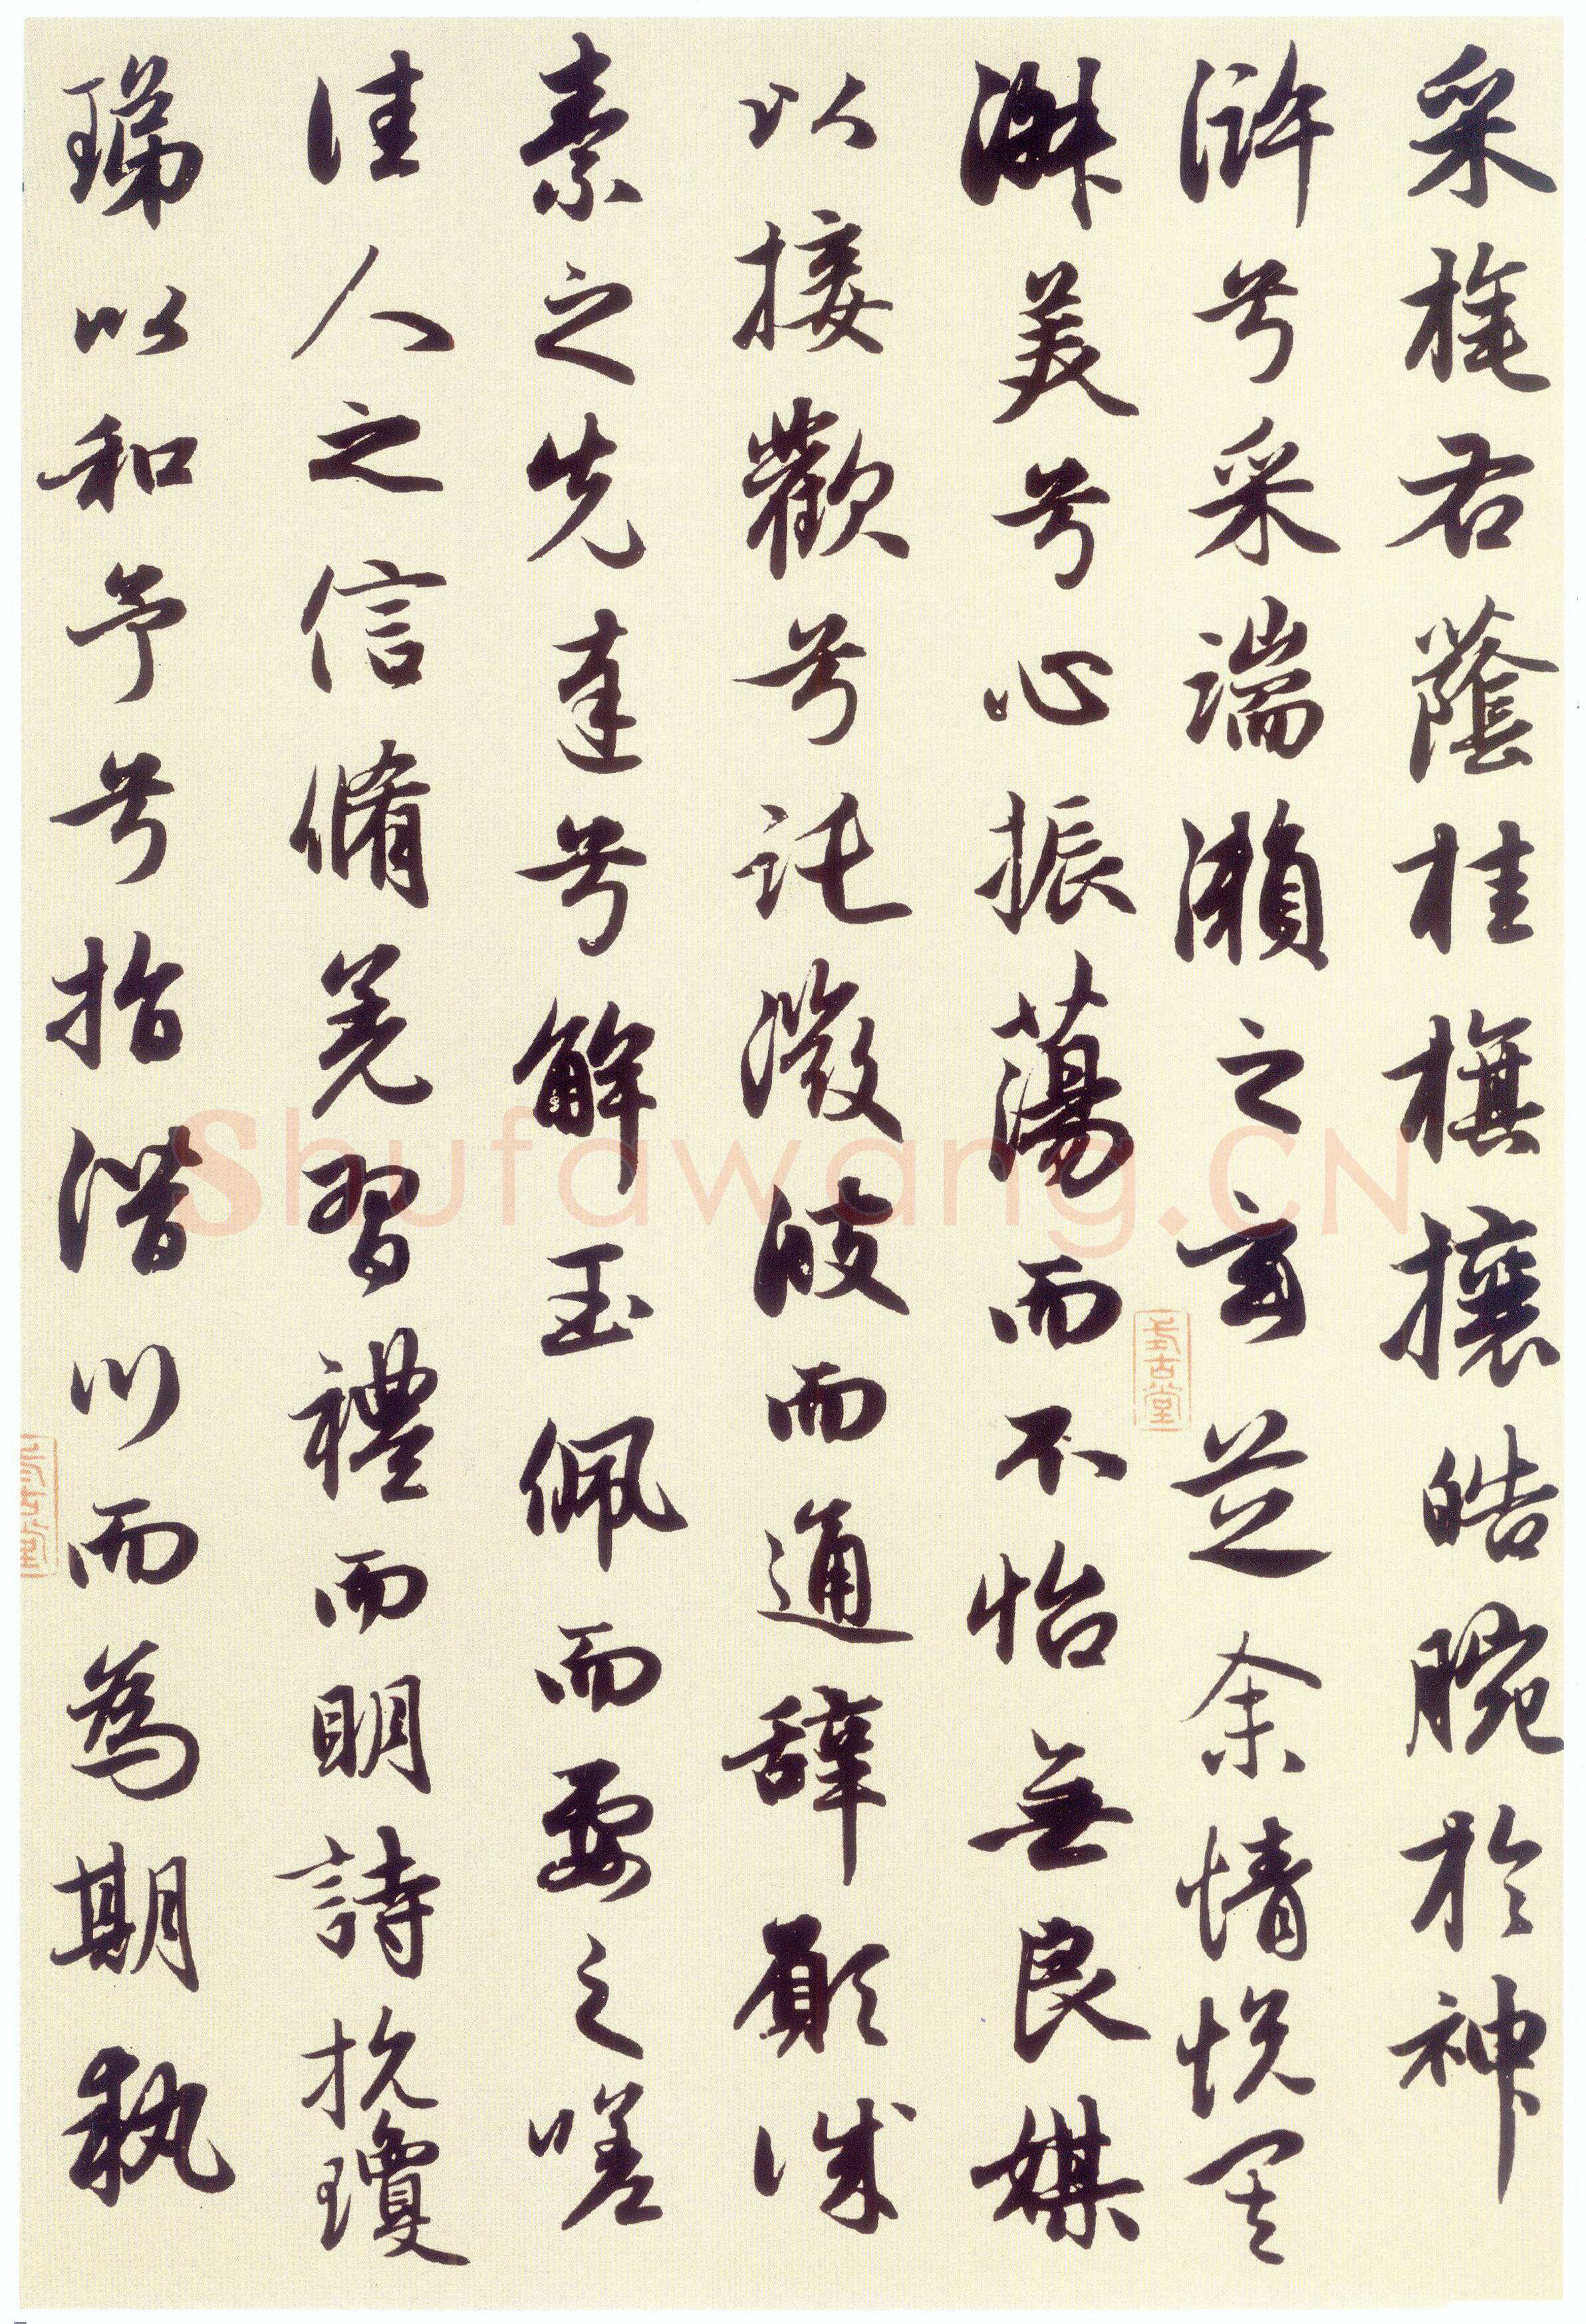 采旄右蔭桂旗攘皓腕於神
滸兮采湍瀨之玄芝余情悅其
淑美兮心振蕩而不怡無良媒
以接歡兮託微波而通辭願誠
素之先達兮解玉佩而要之嗟
佳人之信脩羌習禮而明詩抗瓊
珶以和予兮指潛川而為期執
Shufawang.CN